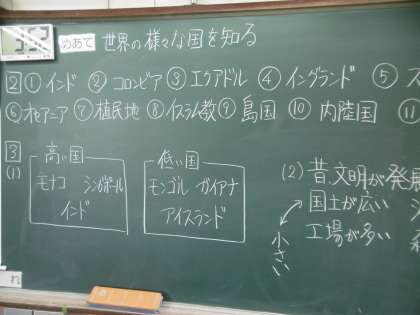 めあて 世界の様々な国を知る
2 ① インド ② コロンビア ③ エクアドル ④ イングランド ⑤ ス
⑥ オセアニア ⑦ 植民地 ⑧ イスラム教 ⑨ 島国 ⑩ 内陸国 ⑪
3
(1)
高い国
モナコ シンガポール
インド
低い国
モンゴル ガイアナ
アイスランド
(2) 昔、文明が発展
国土が広い
工場が多い
小さい